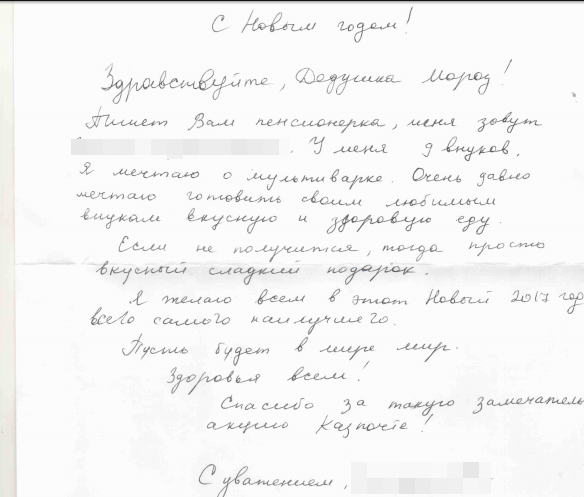 С Новым годом!
Здравствуйте, Дедушка Мороз!
Пишет Вам пенсионерка, меня зовут
. У меня 9 внуков.
Я мечтаю о мультиварке. Очень давно
мечтаю готовить своим любимым
внукам вкусную и здоровую еду.
Если не получится, тогда просто
вкусный сладкий подарок.
Я желаю всем в этот Новый 2017 год
всего самого наилучшего.
Пусть будет в мире мир.
Здоровья всем!
Спасибо за такую замечатель
акцию Казпочте!
С уважением,